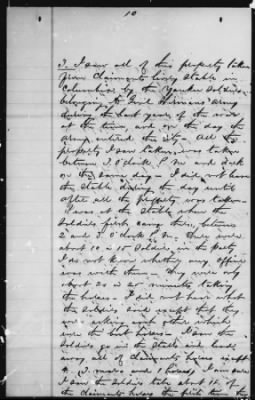 10
3. I saw all of this property taken
from claimants livery stable in
Columbia by the Yankee soldiers
belonging to Genl army
during the last year of the war
at the time, and on the day the
army entered the city. All the
property I saw taken was taken
between 2 O'clock P M and dark
on the same day - I did not leave
the stable during the day until
after all the property was taken.
I was at the stable when the
soldiers first came there, between
2 and 3 O'clock P. M. They were
about 10 or 15 soldiers in the party
I do not know whether any officer
was with them - They were only
about 20 or 25 minutes taking
the horses - I did not hear what
the soldiers said except that they
were asking each other which
were the best horses - I saw the
soldiers go in the stable and lead
away all of claimants horses except
4. (3 mares and 1 horse) I am sure
I saw the soldiers take about 12 of
the claimants horses the first time they